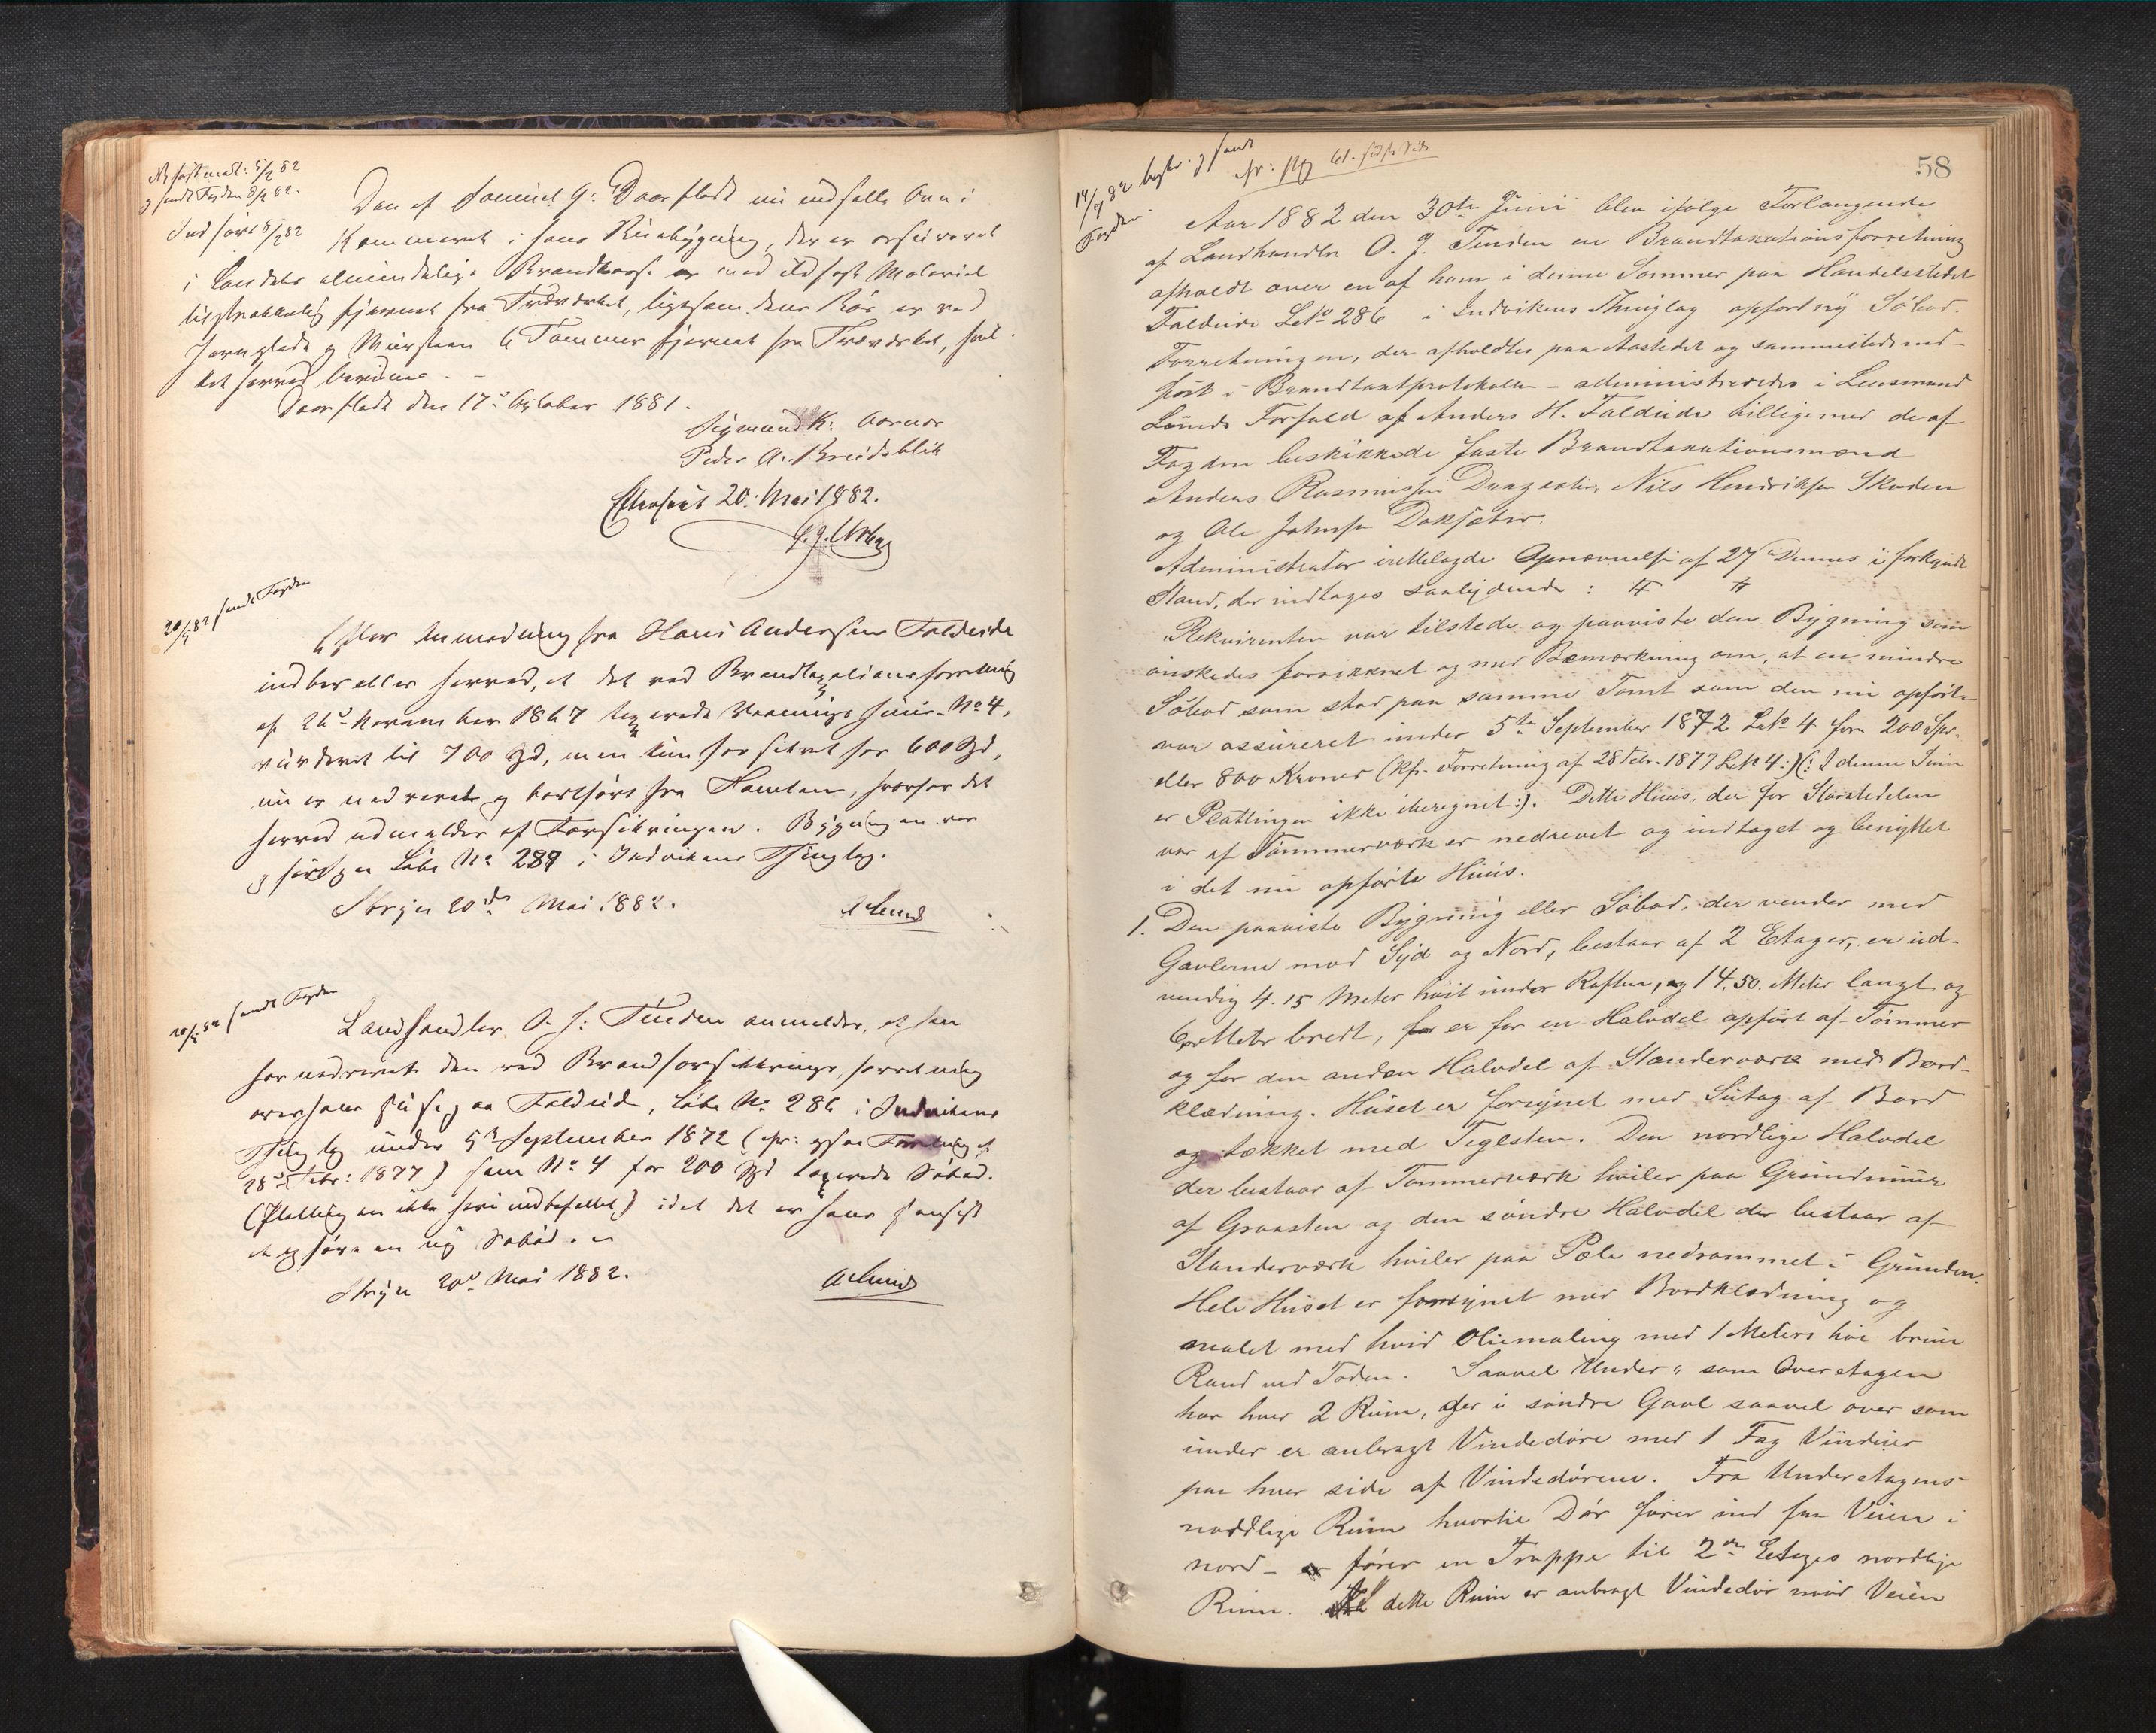 Den af Samuel G. Dvergsdal nu indsatte Ovn i
Kammeret i hans Stuebygning, der er assureret
i Landets almindelige Brandkasse er med ildfast Materiale
tilstrækkelig fjernet fra Træværket, ligesom dens Rør er ved
Jernplade og Mursten 6 Tommer fjernet fra Træværket,
det herved bevidnes. –
den 17de Oktober 1881.
Sigmund K.
Peder A. Breidablik
Efterseet 20. Mai 1882.
20/5 82 sendt Fogden
Efter Anmodning fra Hans Andersen Faleide
indberettes herved, at det ved Brandtaxationsforretning
af 26de November 1867 taxerede Vaaningshuus No 4,
vurderet til 700 Spd, men kun forsikret for 600 Spd,
nu er nedrevet og bortført fra Tomten, hvorfor det
herved udmeldes af Forsikringen. Bygningen var
opført paa Løbe No 287 i Indvikens Thinglag.
Stryn 20de Mai 1882.
A Lund
20/5 82 sendt Fogden
Landhandler O. J. Tenden anmelder, at han
har nedrevet den ved Brandforsikringsforretning
over hans Huse paa Faleide, Løbe No 286 i Indvikens
Thinglag under 5te September 1872 (cfr: ogsaa Forretning af
28de Febr: 1877) som No 4 for 200 Spd taxerede Søbod.
(Platting en ikke heri indbefattet) idet det er hans Hensigt
at opføre en ny Søbod. –
Stryn 20de Mai 1882.
A Lund
58
14/7 82 og sendt
Fogden.
Aar 1882 den 30te Juni blev ifølge Forlangende
af Landhandler O. J. Tenden en Brandtaxationsforretning
afholdt over en af ham i denne Sommer paa Handelsstedet
Faldeide Lbno 286 i Indvikens Thinglag opført ny Søbod.
Forretningen, der afholdtes paa Aastedet og sammesteds ind-
ført i Brandtaxtprotokollen – administreredes i Lensmand
Lunds Forfald af Anders H. Faldeide tilligemed de af
Fogden beskikkede faste Brandtaxationsmænd
Anders Rasmussen, Nils Hendriksen Skaden
og Ole Johnsen
Administrator irettelagde Opnævnelse af 27de Dennes i forkyndt
Stand, der indtages saalydende: # #
Rekvirenten var tilstede og paaviste den Bygning som
ønskedes forsikkret og med Bemærkning om, at en mindre
Søbod som stod paa samme Tomt som den nu opførte
var assureret under 5te September 1872 Lbno 4 for 200 Spr.
eller 800 Kroner (kfr. Forretning af 28 Febr. 1877 Lbn 4:) (: I denne Sum
er Plattingen ikke iberegnet:). Dette Huus, der for Størstedelen
var af Tømmerværk er nedrevet og indtaget og benyttet
i det nu opførte Huus.
1. Den paaviste Bygning eller Søbod, der vender med
Gavlerne mod Syd og Nord, bestaar af 2 Etager, er ud-
vendig 4.15 Meter høit under Raften, og 14.50. Meter langt og
Meter bredt, er for en Halvdel opført af Tømmer
og for den anden Halvdel af Standerværk med Bord-
klædning. Huset er forsynet med Sutag af Bord
og tækket med Teglsten. Den nordlige Halvdel
der bestaar af Tømmerværk hviler paa Grundmuur
af Graasten og den søndre Halvdel der bestaar af
Standerværk hviler paa Pæle nedrammet i Grunden.
Hele Huset er forsynet med Bordklædning og
malet med hvid Oliemaling med 1 Meters høi brun
Rand ved Foden. Saavel Under- som Overetagen
har hver 2 Rum, der i søndre Gavl saavel over som
under er anbragt Vindedøre med 1 Fag Vinduer
paa hver side af Vindedørene. Fra Underetagens
nordlige Rum hvortil Dør fører ind fra Veien i
nord – fører en Trappe til 2den Etages nordlige
Rum. dette Rum er anbragt Vindedør mod Veien